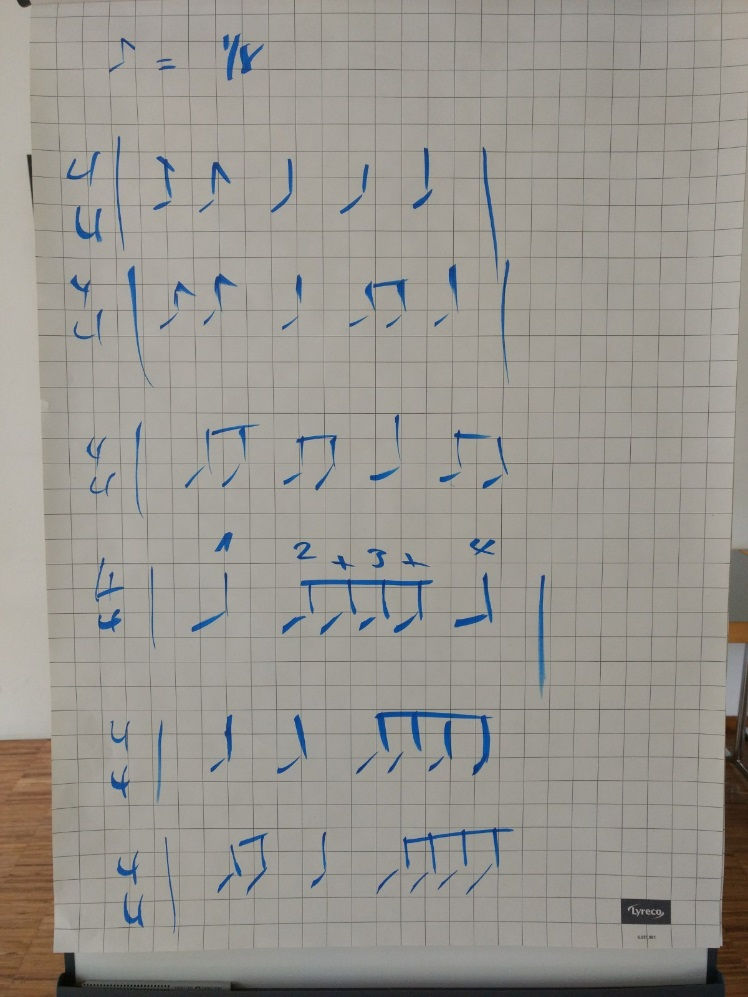 ♪ = 1/8
4/4 | ♪ ♪ ♩ ♩ ♩ |
4/4 | ♪ ♪ ♩ ♫ ♩ |
4/4 | ♫ ♫ ♩ ♫
1 2 + 3 + 4
4/4 | ♩ ♫♫ ♩ |
4/4 | ♩ ♩ ♫♫
4/4 | ♫ ♩ ♫♫
Lyreco